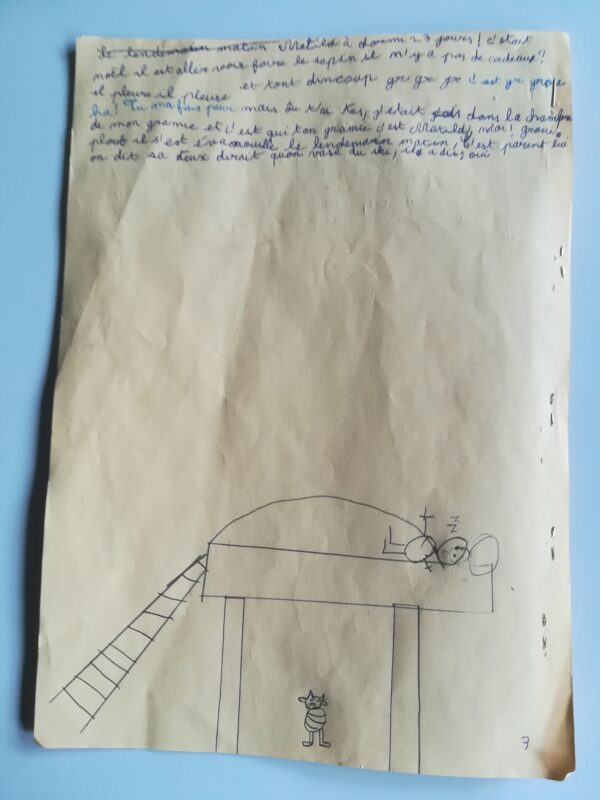 le lendemain matin Matild à dormi 23 jours! c'était
noël il est allée voir faire le sapin il n'y a pas de cadeaux?
il pleure il pleure et tout dincoup gr gr gr c'est gr
ha! Tu ma fais peur mais ôu t'ai Tes, j'etait dans la chambre
de mon gramie et c'est qui ton gramie c'est Matild, moi!
plouf il s'est évanouille le lendemain matin, c'est parent lui
on dit sa deux dirait quon vase du ski, il a dis, oui
z
z
7